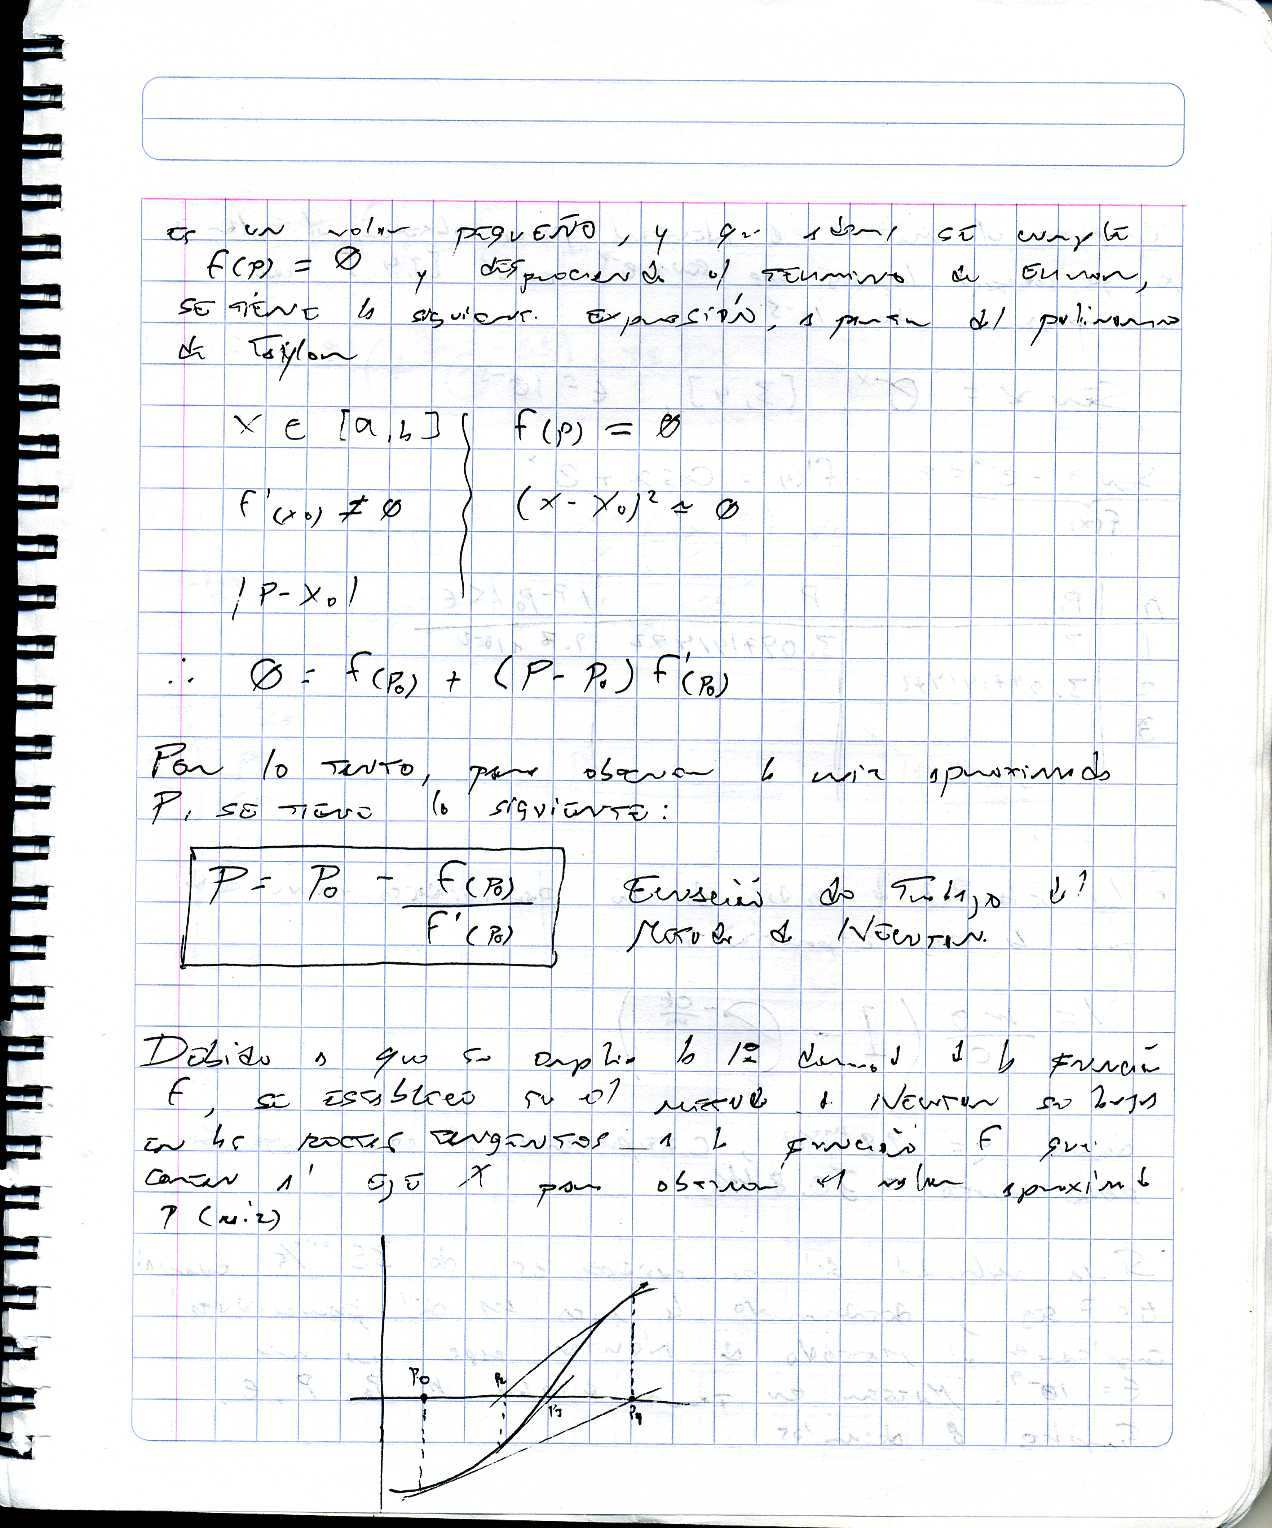 es un valor pequeño, y que además se cumple
f(p) = Ø y despreciando el termino de error,
se tiene la siguiente expresión, a partir del polinomio
de Taylor
x ∈ [a,b] f(p) = Ø
f'(x₀) ≠ Ø (x - x₀)² ≈ Ø
|P - x₀|
∴ Ø = f(P₀) + (P - P₀) f'(P₀)
Por lo tanto, para obtener la raiz aproximada
P, se tiene lo siguiente:
P = P₀ - f(P₀) / f'(P₀) Ecuación de Trabajo del
Metodo de Newton.
Debido a que se emplea la 1ª derivada de la función
f, se establece que el metodo de Newton se basa
en las rectas tangentes a la función f que
cortan al eje X para obtener el valor aproximado
P (raiz)
P₀ P₂ P₃